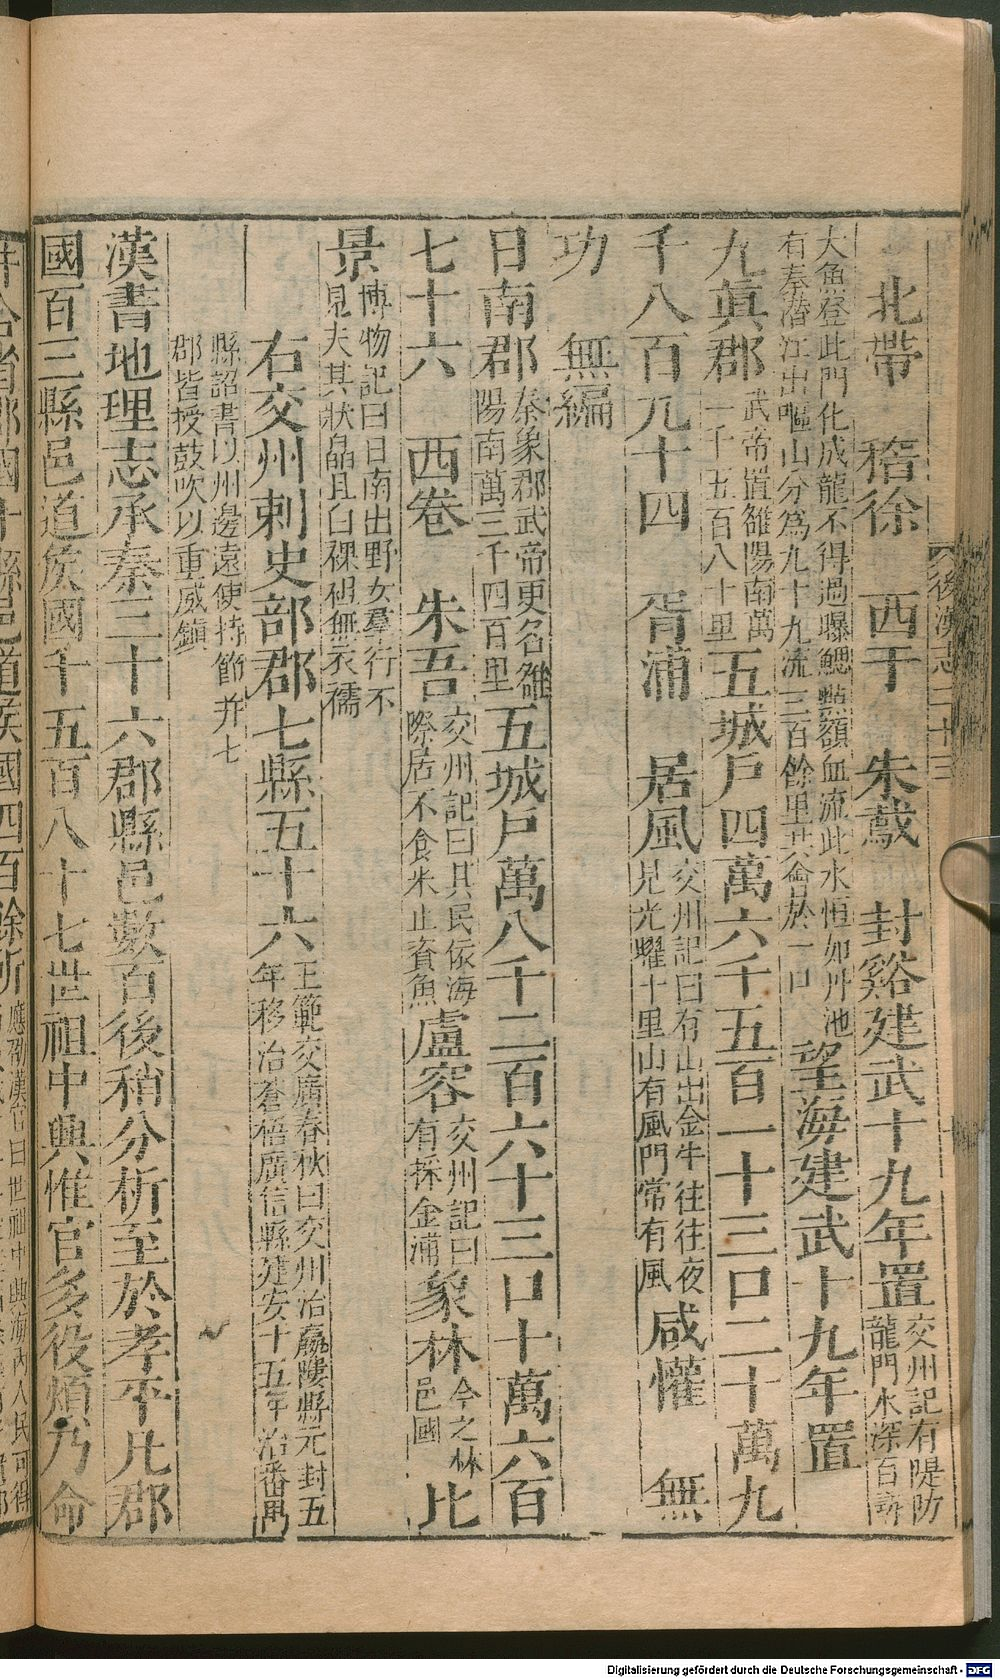 後漢志二十三
北帶 嵇徐 西于 朱䳒 封谿建武十九年置 交州記有隄防龍門水深百尋
大魚登此門化成龍不得過曝鰓點額血流此水恒如丹池有秦潛江出嘔山分爲九十九流三百餘里共會於一口 望海建武十九年置
九眞郡 武帝置雒陽南萬一千五百八十里 五城戶四萬六千五百一十三口二十萬九
千八百九十四 胥浦 居風 交州記曰有山出金牛往往夜見光曜十里山有風門常有風 咸懽 無
功 無編
日南郡 秦象郡武帝更名雒陽南萬三千四百里 五城戶萬八千二百六十三口十萬六百
七十六 西卷 朱吾 交州記曰其民依海際居不食米止資魚 盧容 交州記曰有採金浦 象林 今之林邑國 比
景 博物記曰日南出野女羣行不見夫其狀皛且白裸袒無衣襦
右交州刺史部郡七縣五十六 王範交廣春秋曰交州治羸𨻻縣元封五年移治蒼梧廣信縣建安十五年治番禺
縣詔書以州邊遠使持節并七郡皆授鼓吹以重威鎮
漢書地理志承秦三十六郡縣邑數百後稍分析至於孝平凡郡
國百三縣邑道矦國千五百八十七世祖中興惟官多役煩乃命
并合省郡國十縣邑道矦國四百餘所 應劭漢官曰世祖中興海內人民可得
Digitalisierung gefördert durch die Deutsche Forschungsgemeinschaft - DFG